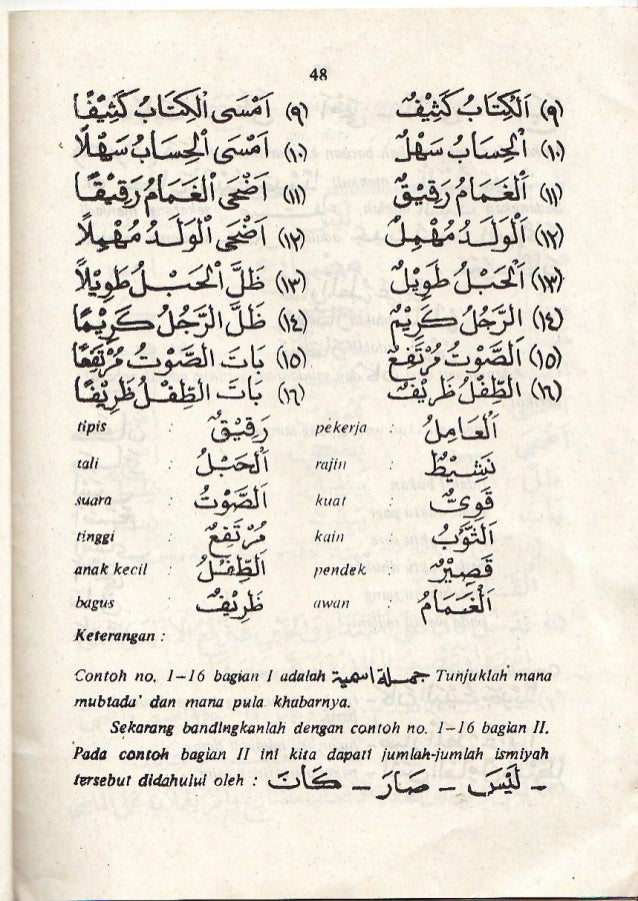 48
(٩) اَلْكِتَابُ كَثِيْفٌ (٩) اَمْسَى الْكِتَابُ كَثِيْفًا
(١٠) اَلْحِسَابُ سَهْلٌ (١٠) اَمْسَى الْحِسَابُ سَهْلًا
(١١) اَلْغَمَامُ رَقِيْقٌ (١١) اَضْحَى الْغَمَامُ رَقِيْقًا
(١٢) اَلْوَلَدُ مُهْمِلٌ (١٢) اَضْحَى الْوَلَدُ مُهْمِلًا
(١٣) اَلْحَبْلُ طَوِيْلٌ (١٣) ظَلَّ الْحَبْلُ طَوِيْلًا
(١٤) الرَّجُلُ كَرِيْمٌ (١٤) ظَلَّ الرَّجُلُ كَرِيْمًا
(١٥) اَلصَّوْتُ مُرْتَفِعٌ (١٥) بَاتَ الصَّوْتُ مُرْتَفِعًا
(١٦) اَلطِّفْلُ ظَرِيْفٌ (١٦) بَاتَ الطِّفْلُ ظَرِيْفًا
tipis : رَقِيْقٌ pekerja : اَلْعَامِلُ
tali : اَلْحَبْلُ rajin : نَشِيْطٌ
suara : اَلصَّوْتُ kuat : قَوِيٌّ
tinggi : مُرْتَفِعٌ kain : اَلثَّوْبُ
anak kecil : اَلطِّفْلُ pendek : قَصِيْرٌ
bagus : ظَرِيْفٌ awan : اَلْغَمَامُ
Keterangan :
Contoh no. 1–16 bagian I adalah جملة اسمية Tunjuklah mana
mubtada' dan mana pula khabarnya.
Sekarang bandingkanlah dengan contoh no. 1–16 bagian II.
Pada contoh bagian II ini kita dapati jumlah-jumlah ismiyah
tersebut didahului oleh : كَانَ – صَارَ – لَيْسَ –